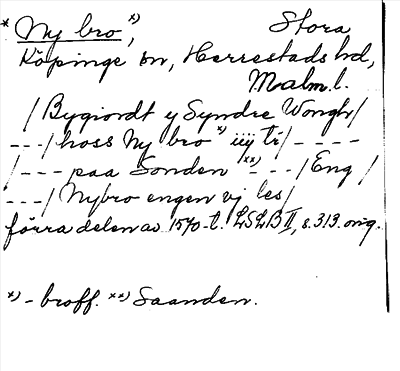 * Ny bro *), Stora
Köpinge sn, Herrestads hd,
Malm. l.
/ Bygiordt y Syndre Wongh /
---/ hoss Ny bro *) iiij tr /----
/--- paa Sonden **) ---/ Eng /
---/ Nybro engen vj les /
förra delen av 1570-t. LSLB II, s. 313. orig.
*) - broff. **) Saanden.